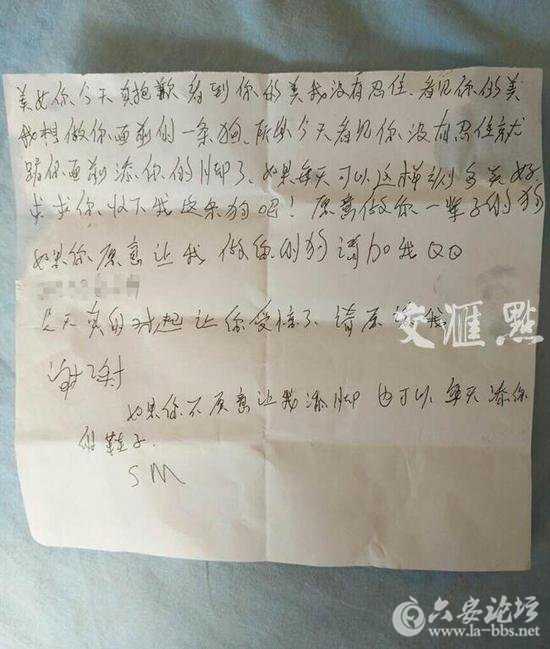 美女你、今天真抱歉看到你的美我没有忍住、看见你的美
我想做你面前的一条狗、所以今天看见你没有忍住就
跪你面前添你的脚了、如果每天可以这样该多美好
求求你、收下我这条狗吧！愿意做你一辈子的狗
如果你愿意让我做你的狗请加我QQ
今天真的对起让你受惊了 请原谅我
谢谢
如果你不愿意让我添脚 也可以、每天添你
的鞋子.
SM
交汇點
六安论坛
www.la-bbs.net